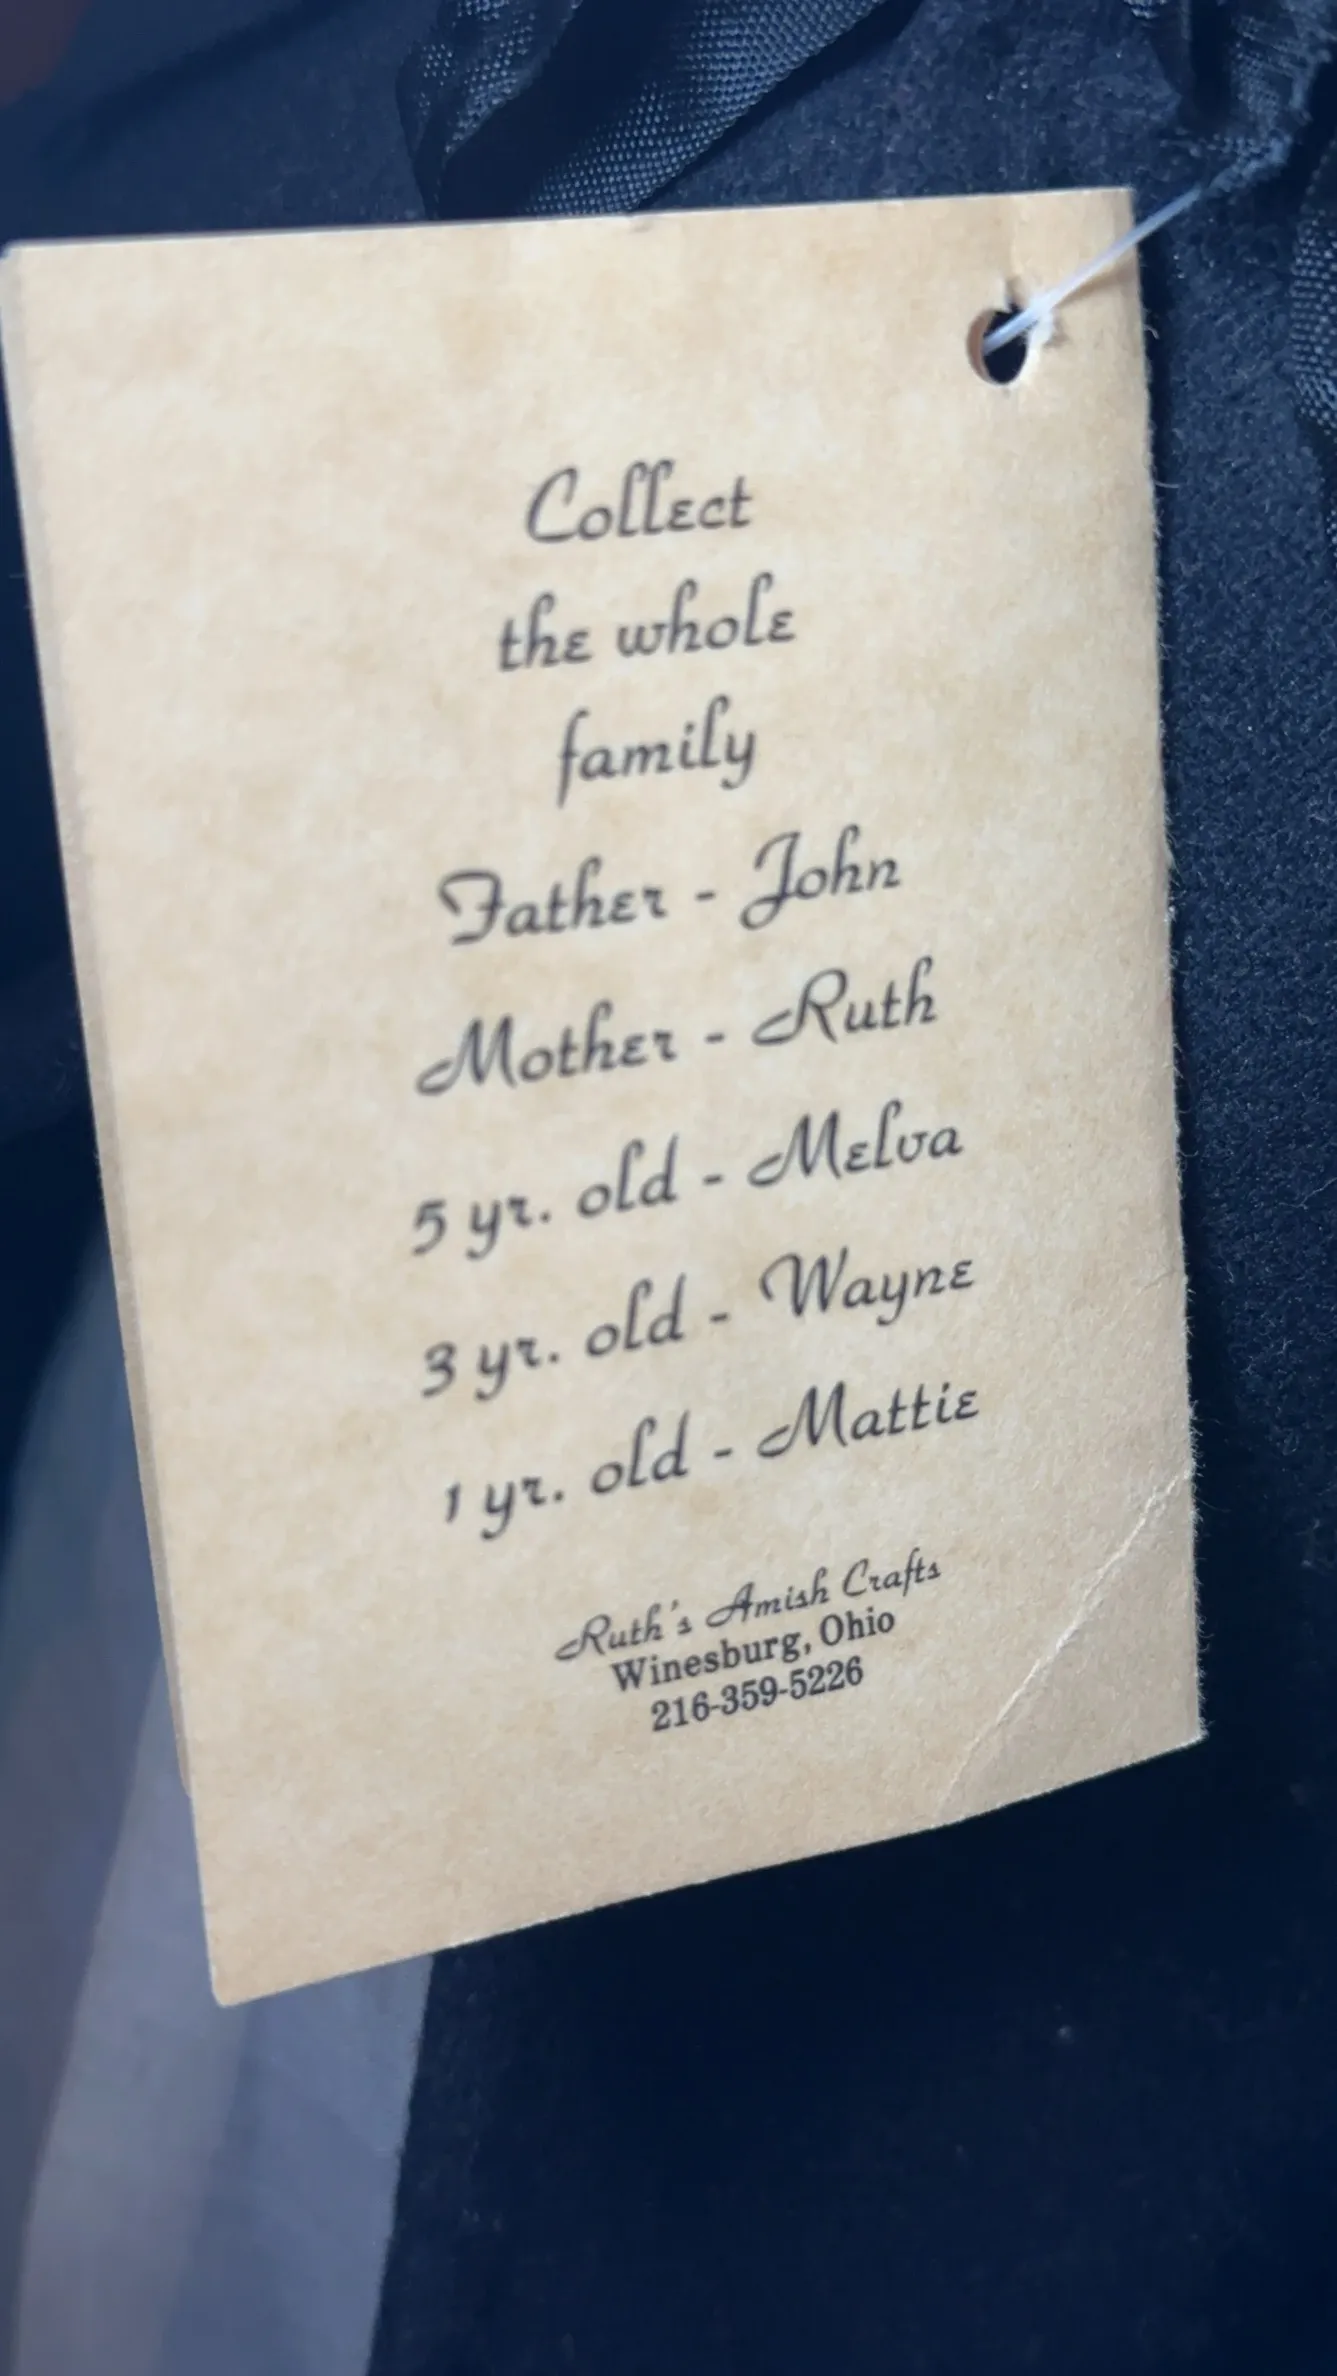 Collect
the whole
family
Father - John
Mother - Ruth
5 yr. old - Melva
3 yr. old - Wayne
1 yr. old - Mattie
Ruth's Amish Crafts
Winesburg, Ohio
216-359-5226